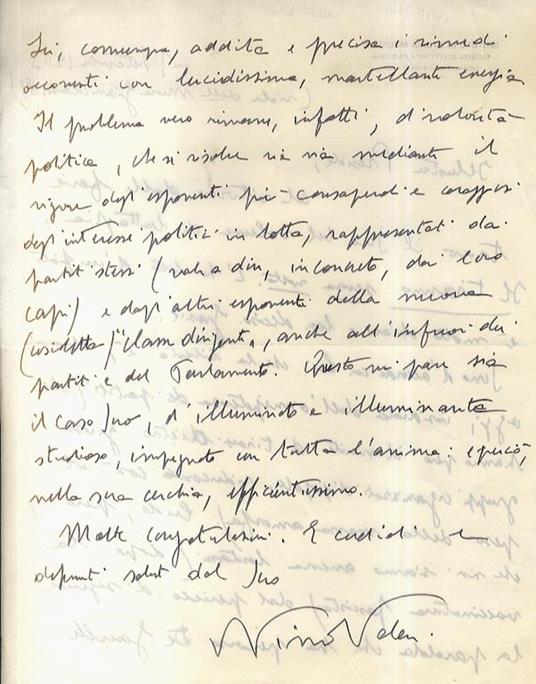 Lei, comunque, addita e precisa i rimedi
occorrenti con lucidissima, martellante energia.
Il problema vero rimane, infatti, di volontà
politica, che si risolve via via mediante il
vigore degli esponenti più consapevoli e coraggiosi
degl'interessi politici in lotta, rappresentati dai
partiti stessi (vale a dire, in concreto, dai loro
capi) e dagli altri esponenti della nuova
(cosidetta) "classe dirigente", anche all'infuori dei
partiti e del Parlamento. Questo mi pare sia
il caso Suo, d'illuminato e illuminante
studioso, impegnato con tutta l'anima: e perciò,
nella sua cerchia, efficientissimo.
Molte congratulazioni. E cordiali e
devoti saluti dal Suo
Nino Valeri